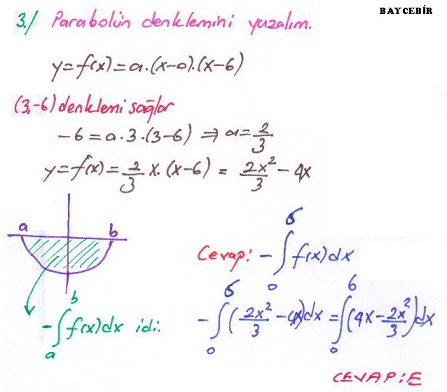 BAYCEBİR
3./ Parabolün denklemini yazalım.
y=f(x)=a.(x-0).(x-6)
(3,-6) denklemi sağlar
-6=a.3.(3-6) ⇒ a=2/3
y=f(x)=2/3 x.(x-6) = 2x²/3 - 4x
a b
-∫_a^b f(x)dx idi.
Cevap: -∫_0^6 f(x)dx
-∫_0^6 (2x²/3 - 4x)dx = ∫_0^6 (4x - 2x²/3)dx
CEVAP:E